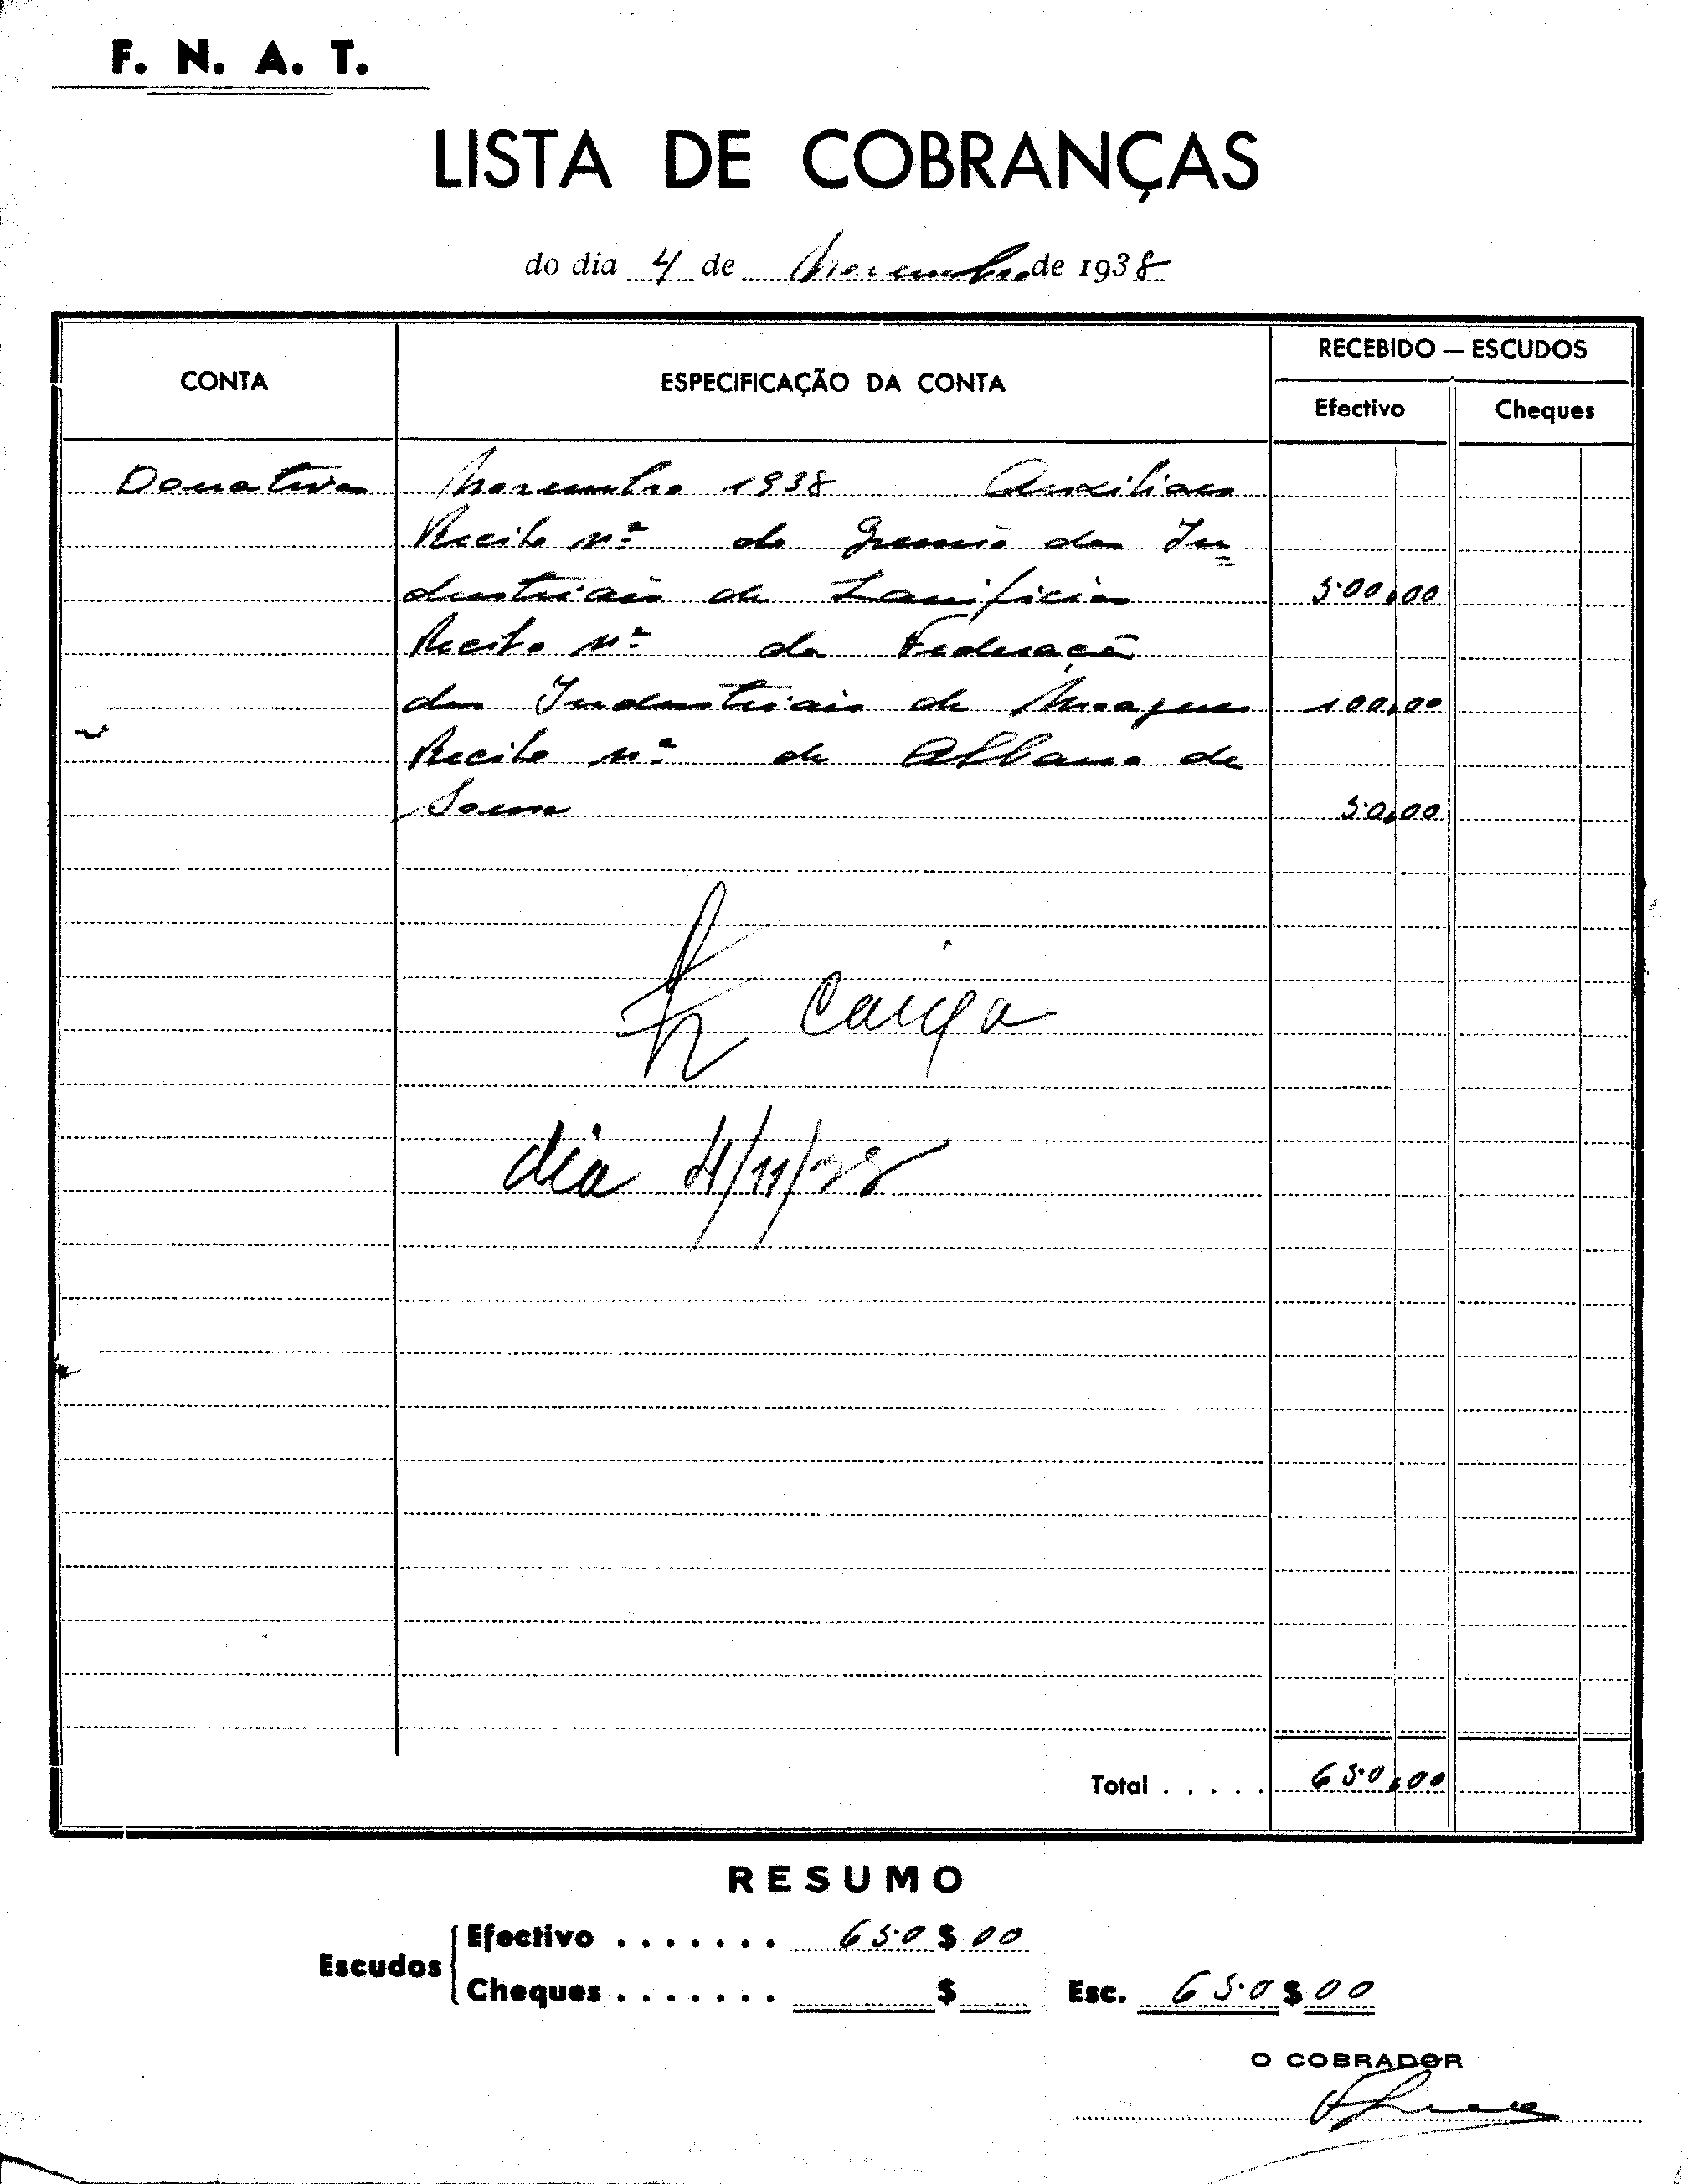 F. N. A. T.
LISTA DE COBRANÇAS
do dia 4 de Novembro de 1938
CONTA
ESPECIFICAÇÃO DA CONTA
RECEBIDO — ESCUDOS
Efectivo
Cheques
Donativos Novembro 1938 Auxiliares
Recibo nº do Gremio dos In=
dustriais de Lanificios 500,00
Recibo nº da Federação
dos Industriais de Moagem 100,00
Recibo nº de Albano de
Sousa 50,00
Caixa
dia 4/11/38
Total . . . . . 650,00
RESUMO
Escudos
Efectivo . . . . . . . 650$00
Cheques . . . . . . . $
Esc. 650$00
O COBRADOR